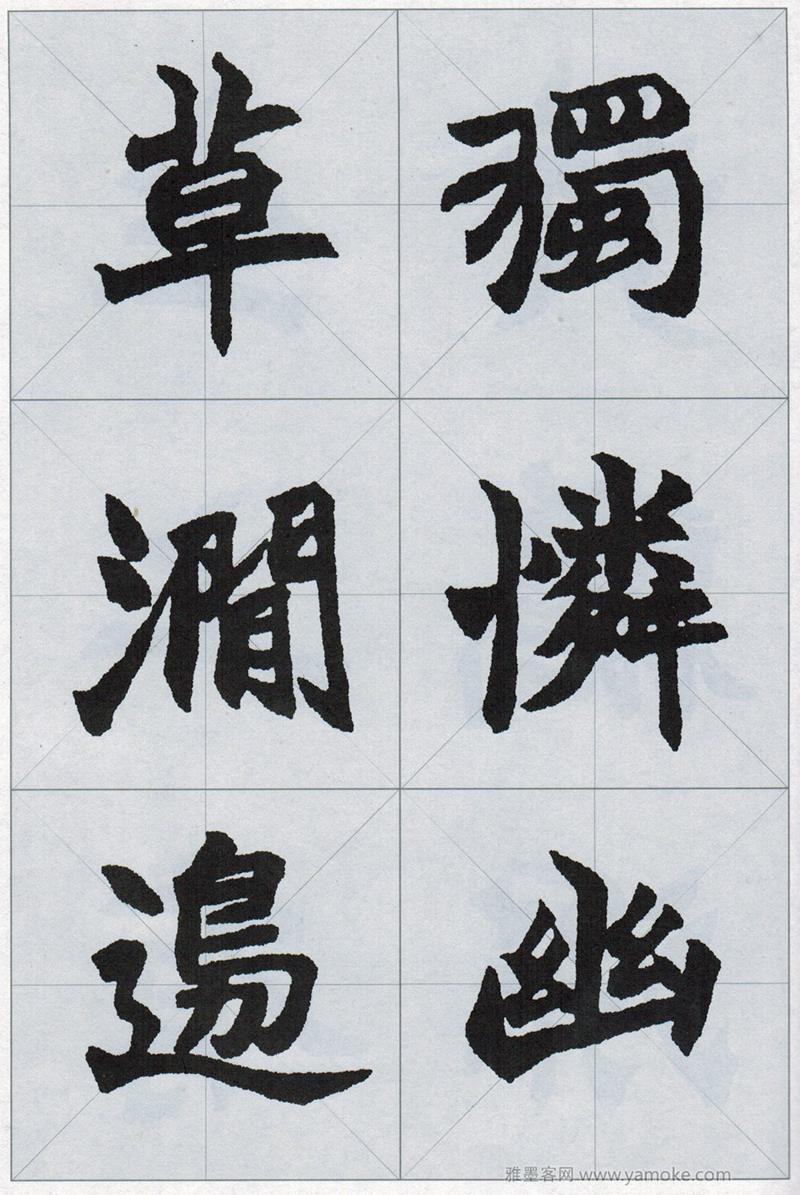 獨憐幽
草澗邊
雅墨客网 www.yamoke.com